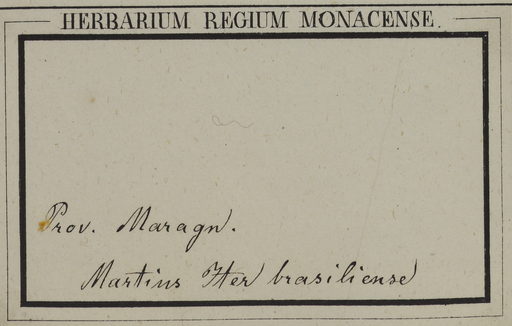 HERBARIUM REGIUM MONACENSE.
Prov. Maragn.
Martius Iter brasiliense